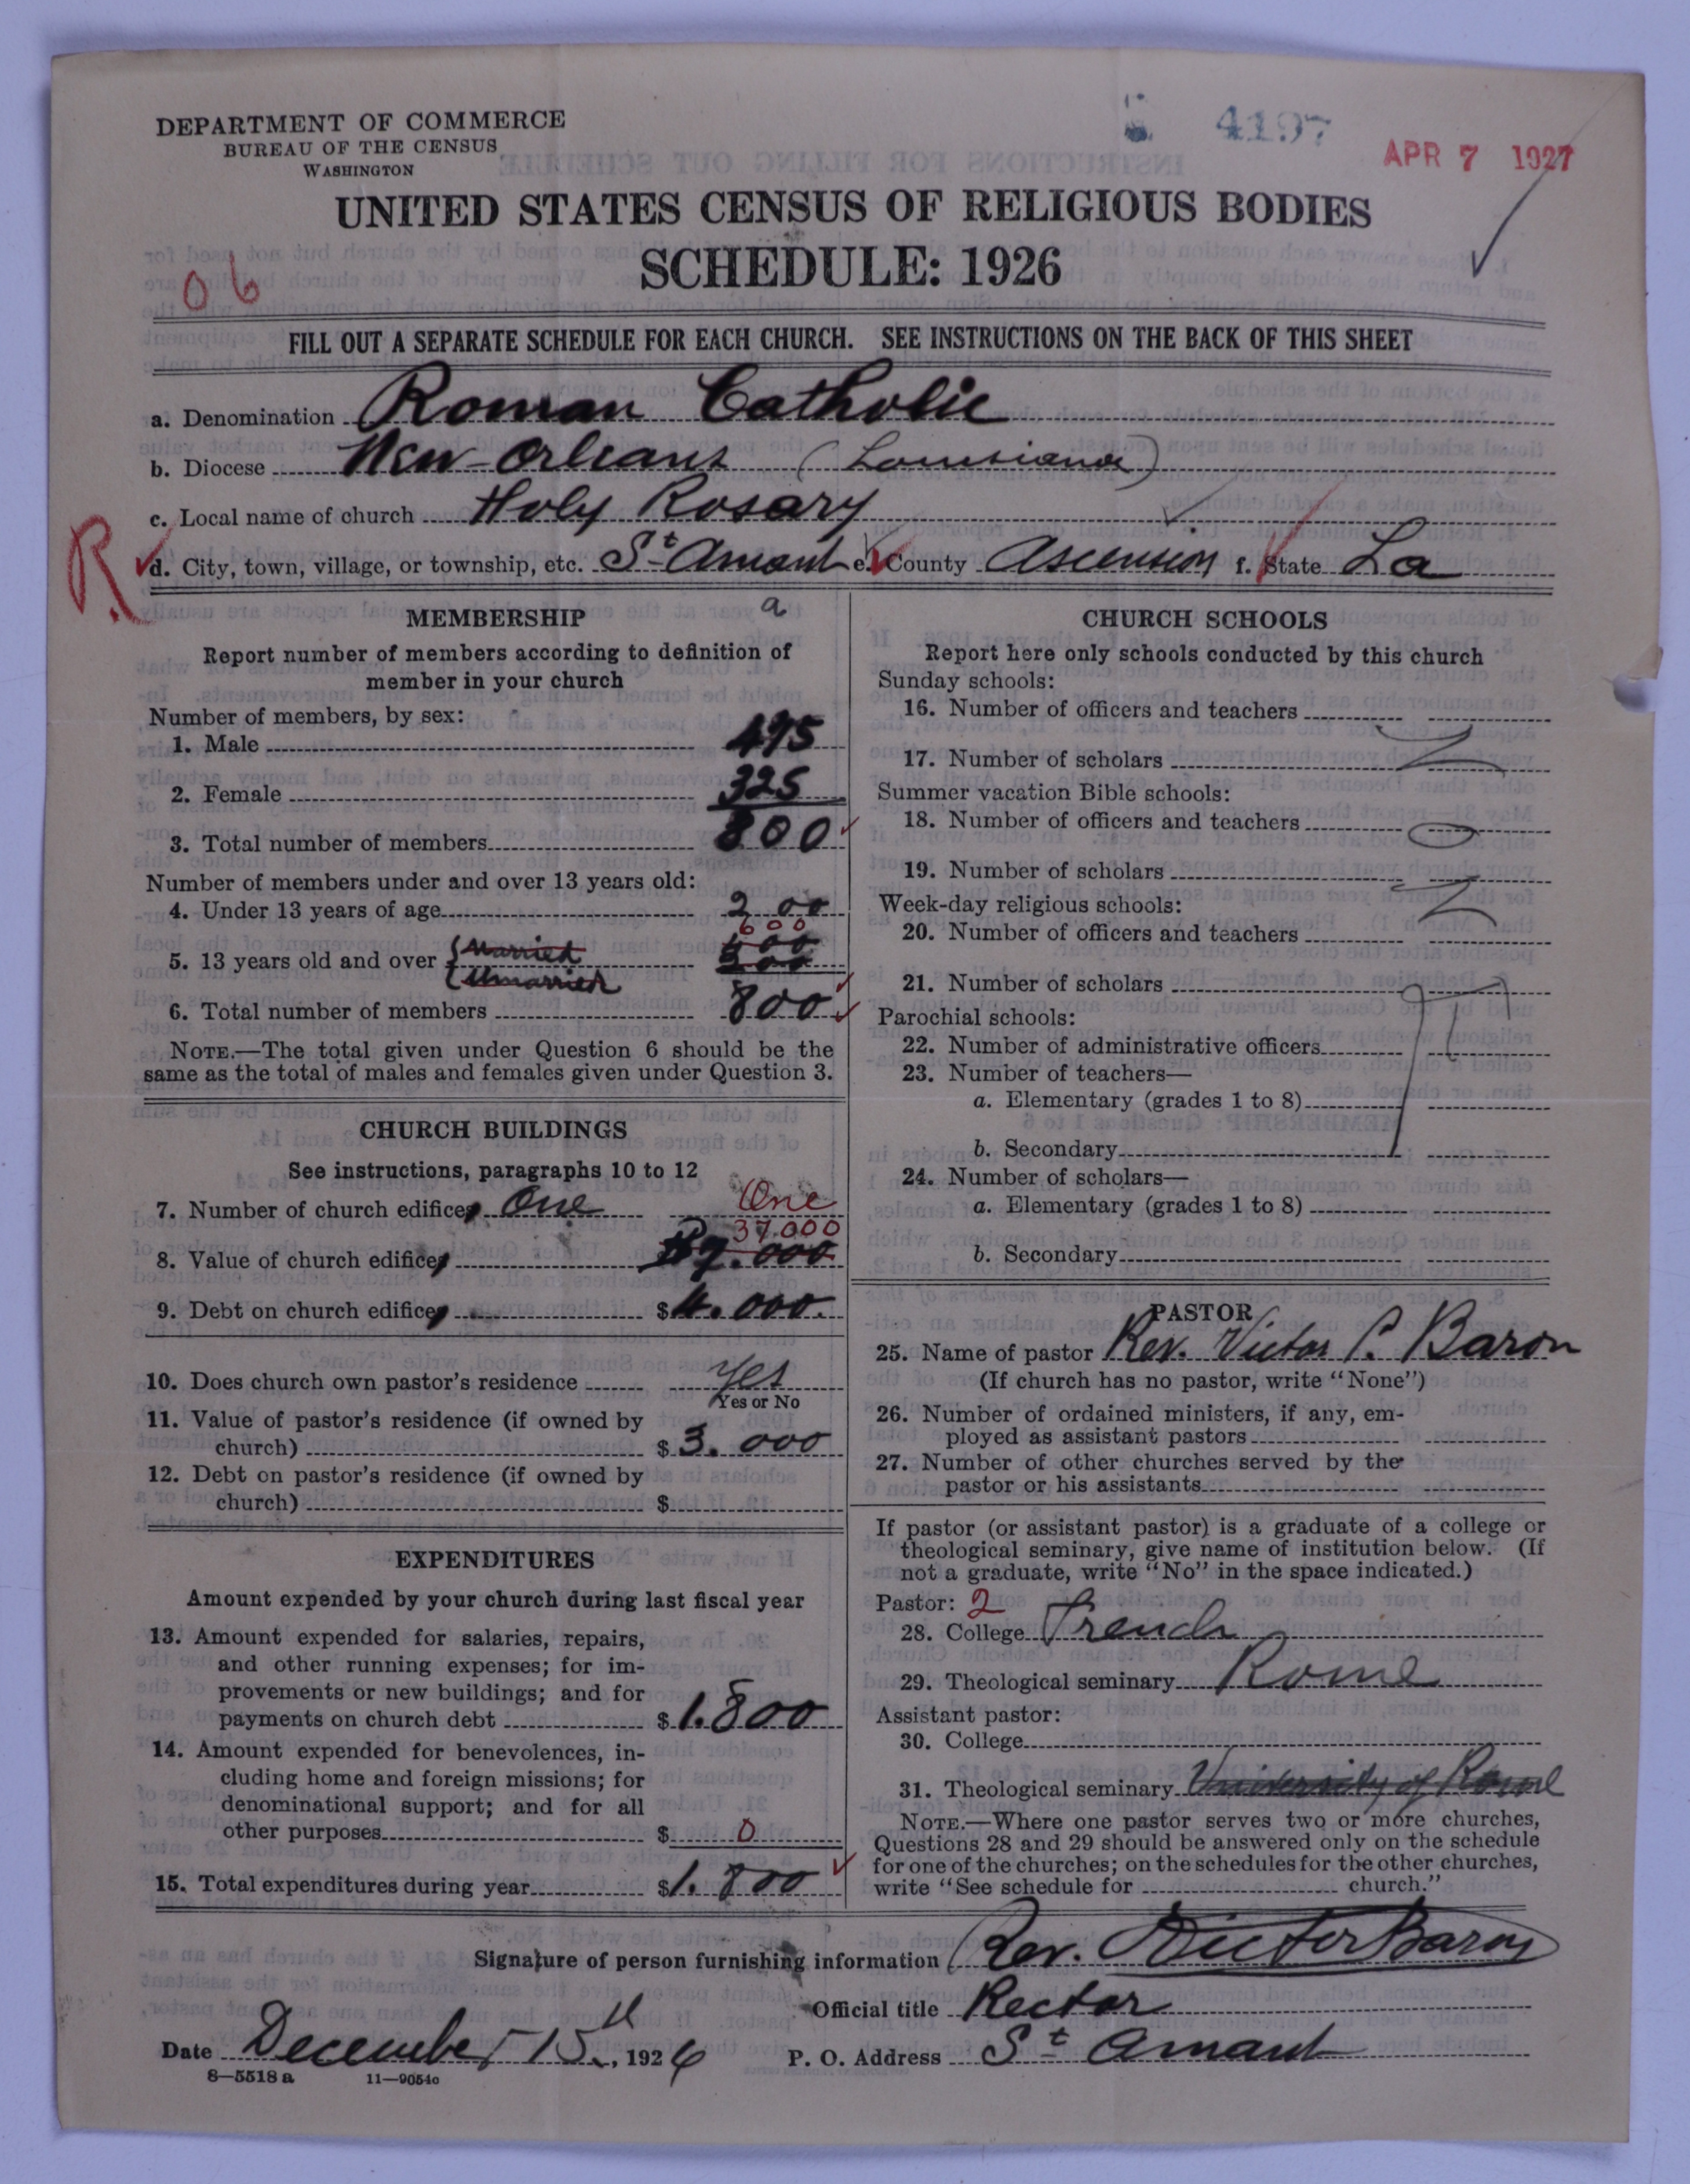 DEPARTMENT OF COMMERCE
BUREAU OF THE CENSUS
WASHINGTON
4197
APR 7 1927
UNITED STATES CENSUS OF RELIGIOUS BODIES
SCHEDULE: 1926
06
FILL OUT A SEPARATE SCHEDULE FOR EACH CHURCH. SEE INSTRUCTIONS ON THE BACK OF THIS SHEET
a. Denomination Roman Catholic
b. Diocese New-Orleans (Louisiana)
c. Local name of church Holy Rosary
R
d. City, town, village, or township, etc. St Amant e. County Ascension f. State La
a
MEMBERSHIP
Report number of members according to definition of
member in your church
Number of members, by sex:
1. Male 475
2. Female 325
3. Total number of members 800
Number of members under and over 13 years old:
4. Under 13 years of age 200
600
5. 13 years old and over Married 400
Unmarried
6. Total number of members 800
NOTE.—The total given under Question 6 should be the
same as the total of males and females given under Question 3.
CHURCH BUILDINGS
See instructions, paragraphs 10 to 12
7. Number of church edifices One One
37.000
8. Value of church edifices
9. Debt on church edifices $4.000.
10. Does church own pastor's residence Yes
Yes or No
11. Value of pastor's residence (if owned by
church) $3.000
12. Debt on pastor's residence (if owned by
church) $
EXPENDITURES
Amount expended by your church during last fiscal year
13. Amount expended for salaries, repairs,
and other running expenses; for im-
provements or new buildings; and for
payments on church debt $1.800
14. Amount expended for benevolences, in-
cluding home and foreign missions; for
denominational support; and for all
other purposes $0
15. Total expenditures during year $1.800
CHURCH SCHOOLS
Report here only schools conducted by this church
Sunday schools:
16. Number of officers and teachers
17. Number of scholars
Summer vacation Bible schools:
18. Number of officers and teachers
19. Number of scholars
Week-day religious schools:
20. Number of officers and teachers
21. Number of scholars
Parochial schools:
22. Number of administrative officers
23. Number of teachers—
a. Elementary (grades 1 to 8)
b. Secondary
24. Number of scholars—
a. Elementary (grades 1 to 8)
b. Secondary
PASTOR
25. Name of pastor Rev. Victor P. Baron
(If church has no pastor, write "None")
26. Number of ordained ministers, if any, em-
ployed as assistant pastors
27. Number of other churches served by the
pastor or his assistants
If pastor (or assistant pastor) is a graduate of a college or
theological seminary, give name of institution below. (If
not a graduate, write "No" in the space indicated.)
Pastor: 2
28. College French
29. Theological seminary Rome
Assistant pastor:
30. College
31. Theological seminary University of Rome
NOTE.—Where one pastor serves two or more churches,
Questions 28 and 29 should be answered only on the schedule
for one of the churches; on the schedules for the other churches,
write "See schedule for church."
Signature of person furnishing information Rev. Victor Baron
Official title Rector
Date December 15th, 1926 P. O. Address St Amant
8—5518 a 11—9054c